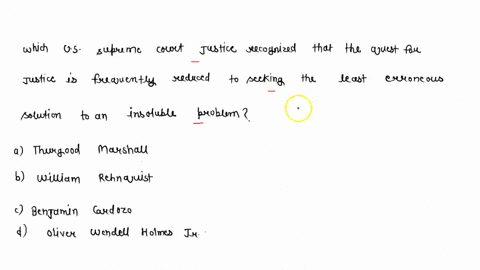 which U.S. supreme court justice recognized that the quest for
justice is frequently reduced to seeking the least erroneous
solution to an insoluble problem?
a) Thurgood Marshall
b) William Rehnquist
c) Benjamin Cardozo
d) Oliver Wendell Holmes Jr.